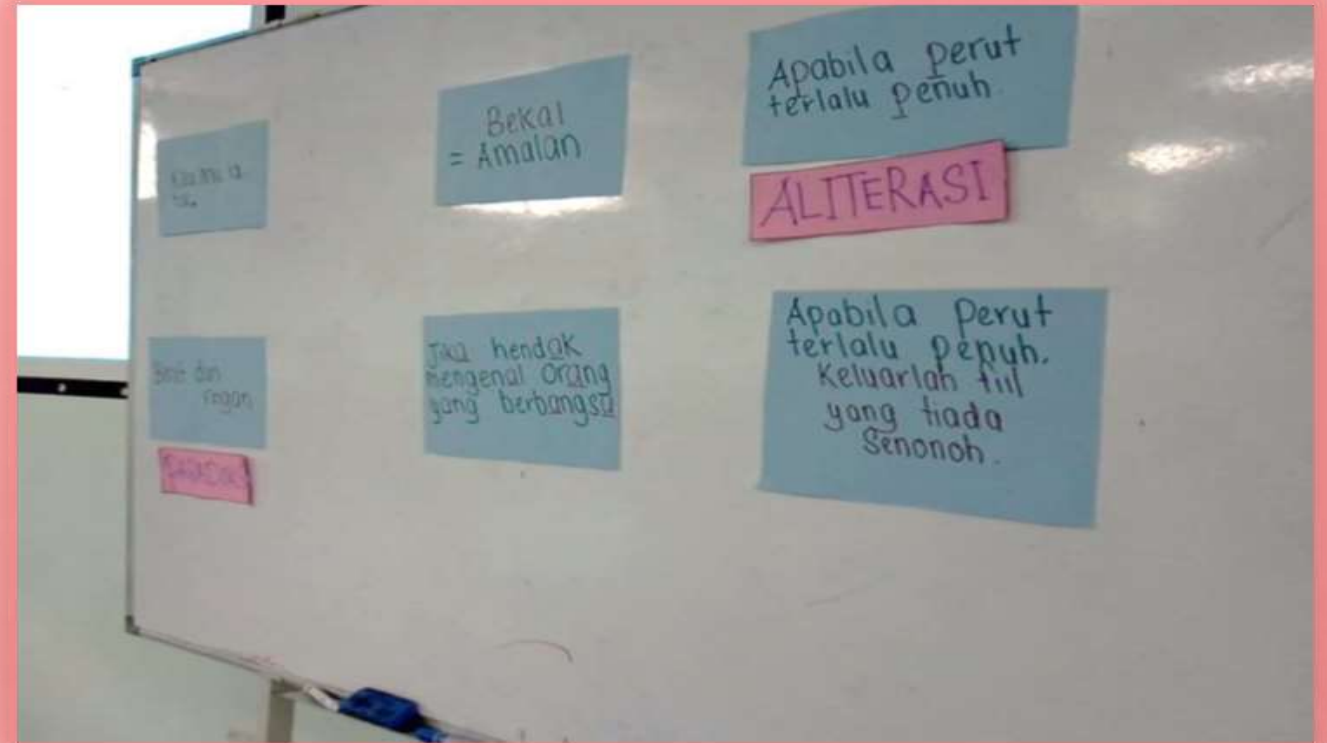 Bekal
= Amalan
Apabila perut
terlalu penuh.
ALITERASI
dan
ringan
Jika hendak
mengenal orang
yang berbangsa
Apabila perut
terlalu penuh.
Keluarlah fiil
yang tiada
Senonoh.